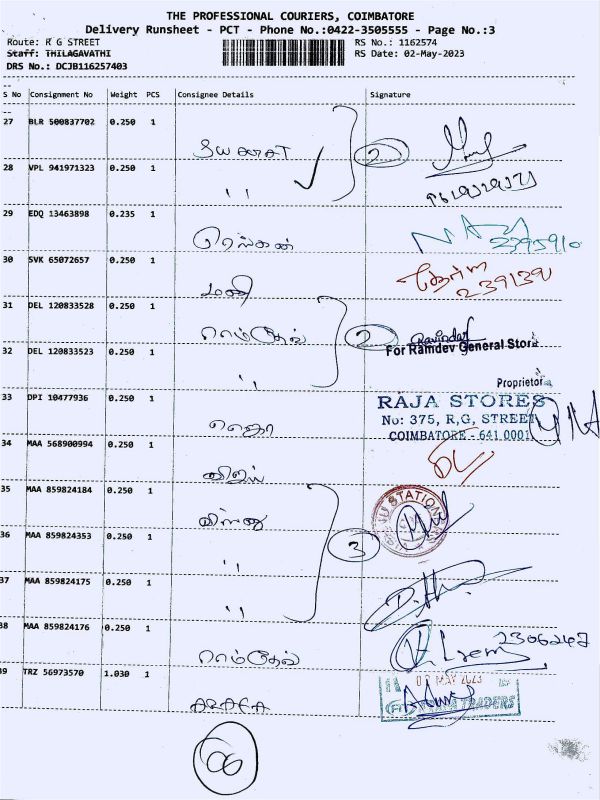 THE PROFESSIONAL COURIERS, COIMBATORE
Delivery Runsheet - PCT - Phone No.:0422-3505555 - Page No.:3
Route: R G STREET
RS No.: 1162574
Staff: THILAGAVATHI
RS Date: 02-May-2023
DRS No.: DCJB116257403
S No Consignment No Weight PCS Consignee Details Signature
27 BLR 500837702 0.250 1
2
28 VPL 941971323 0.250 1 ''
29 EDQ 13463898 0.235 1 ரெங்கன்
2395910
30 SVK 65072657 0.250 1 மணி
239139
31 DEL 120833528 0.250 1 ராம்தேவ் 2 Ravindar
For Ramdev General Store
32 DEL 120833523 0.250 1 ''
Proprietor
33 DPI 10477936 0.250 1 ராஜா
RAJA STORES
No: 375, R,G, STREET
COIMBATORE - 641 0001
34 MAA 568900994 0.250 1 விஜய்
35 MAA 859824184 0.250 1 விஷ்ணு
36 MAA 859824353 0.250 1 '' 3
37 MAA 859824175 0.250 1 ''
38 MAA 859824176 0.250 1 ராம்தேவ் 2306247
39 TRZ 56973570 1.030 1
02 MAY 2023
TRADERS
06